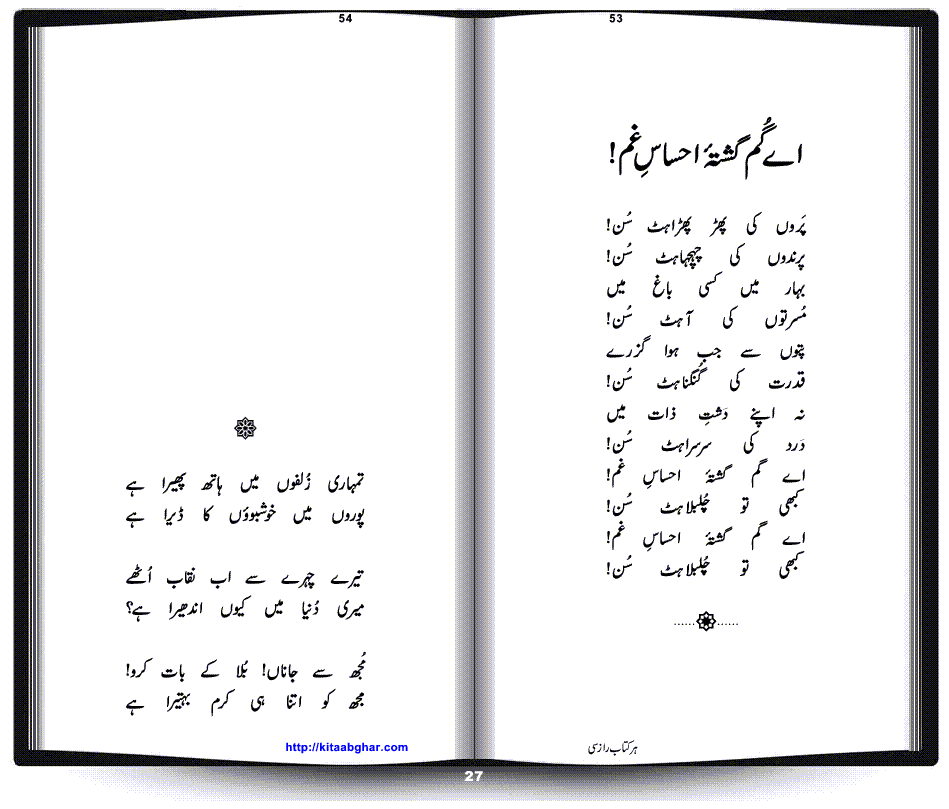 53
اے گُم گشتۂ احساسِ غم!
پَروں کی پھڑ پھڑاہٹ سُن!
پرندوں کی چہچہاہٹ سُن!
بہار میں کسی باغ میں
مُسرتوں کی آہٹ سُن!
پتوں سے جب ہوا گزرے
قدرت کی گُنگناہٹ سُن!
نہ اپنے دَشتِ ذات میں
دَرد کی سرسراہٹ سُن!
اے گم گشتۂ احساسِ غم!
کبھی تو چُلبلاہٹ سُن!
اے گم گشتۂ احساسِ غم!
کبھی تو چُلبلاہٹ سُن!
ہر کتاب راز سی
54
تمہاری زُلفوں میں ہاتھ پھیرا ہے
پوروں میں خوشبوؤں کا ڈیرا ہے
تیرے چہرے سے اب نقاب اُٹھے
میری دُنیا میں کیوں اندھیرا ہے؟
مُجھ سے جاناں! بُلا کے بات کرو!
مجھ کو اتنا ہی کرم بہتیرا ہے
http://kitaabghar.com
27